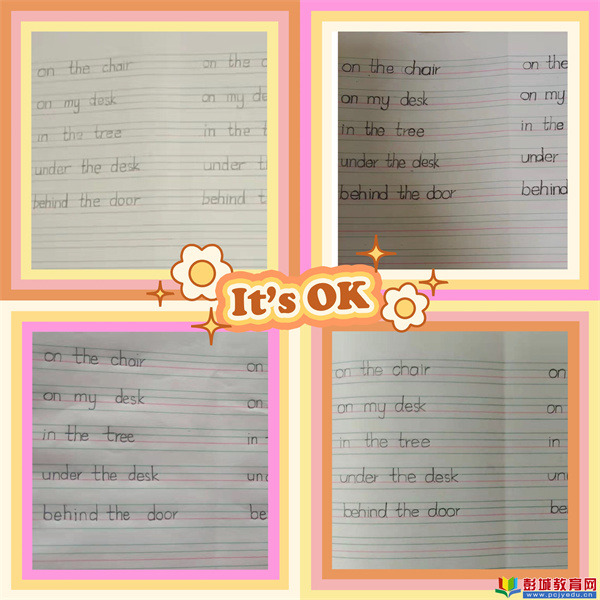 on the chair on the c
on my desk on my de
in the tree in the t
under the desk under th
behind the door behind t
on the chair on the
on my desk on my
in the tree in the
under the desk under
behind the door behind
It's OK
on the chair on
on my desk on
in the tree in
under the desk und
behind the door be
on the chair on
on my desk on
in the tree in
under the desk un
behind the door be
彭城教育网
www.pcjyedu.cn